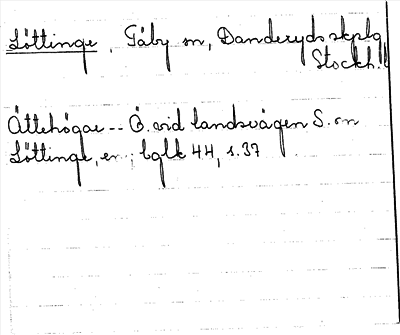 Löttinge, Täby sn, Danderyds skplg
Stockh.l
Ättehögar -- Ö. vid landsvägen S. om
Löttinge, en; bglk 44, s. 37